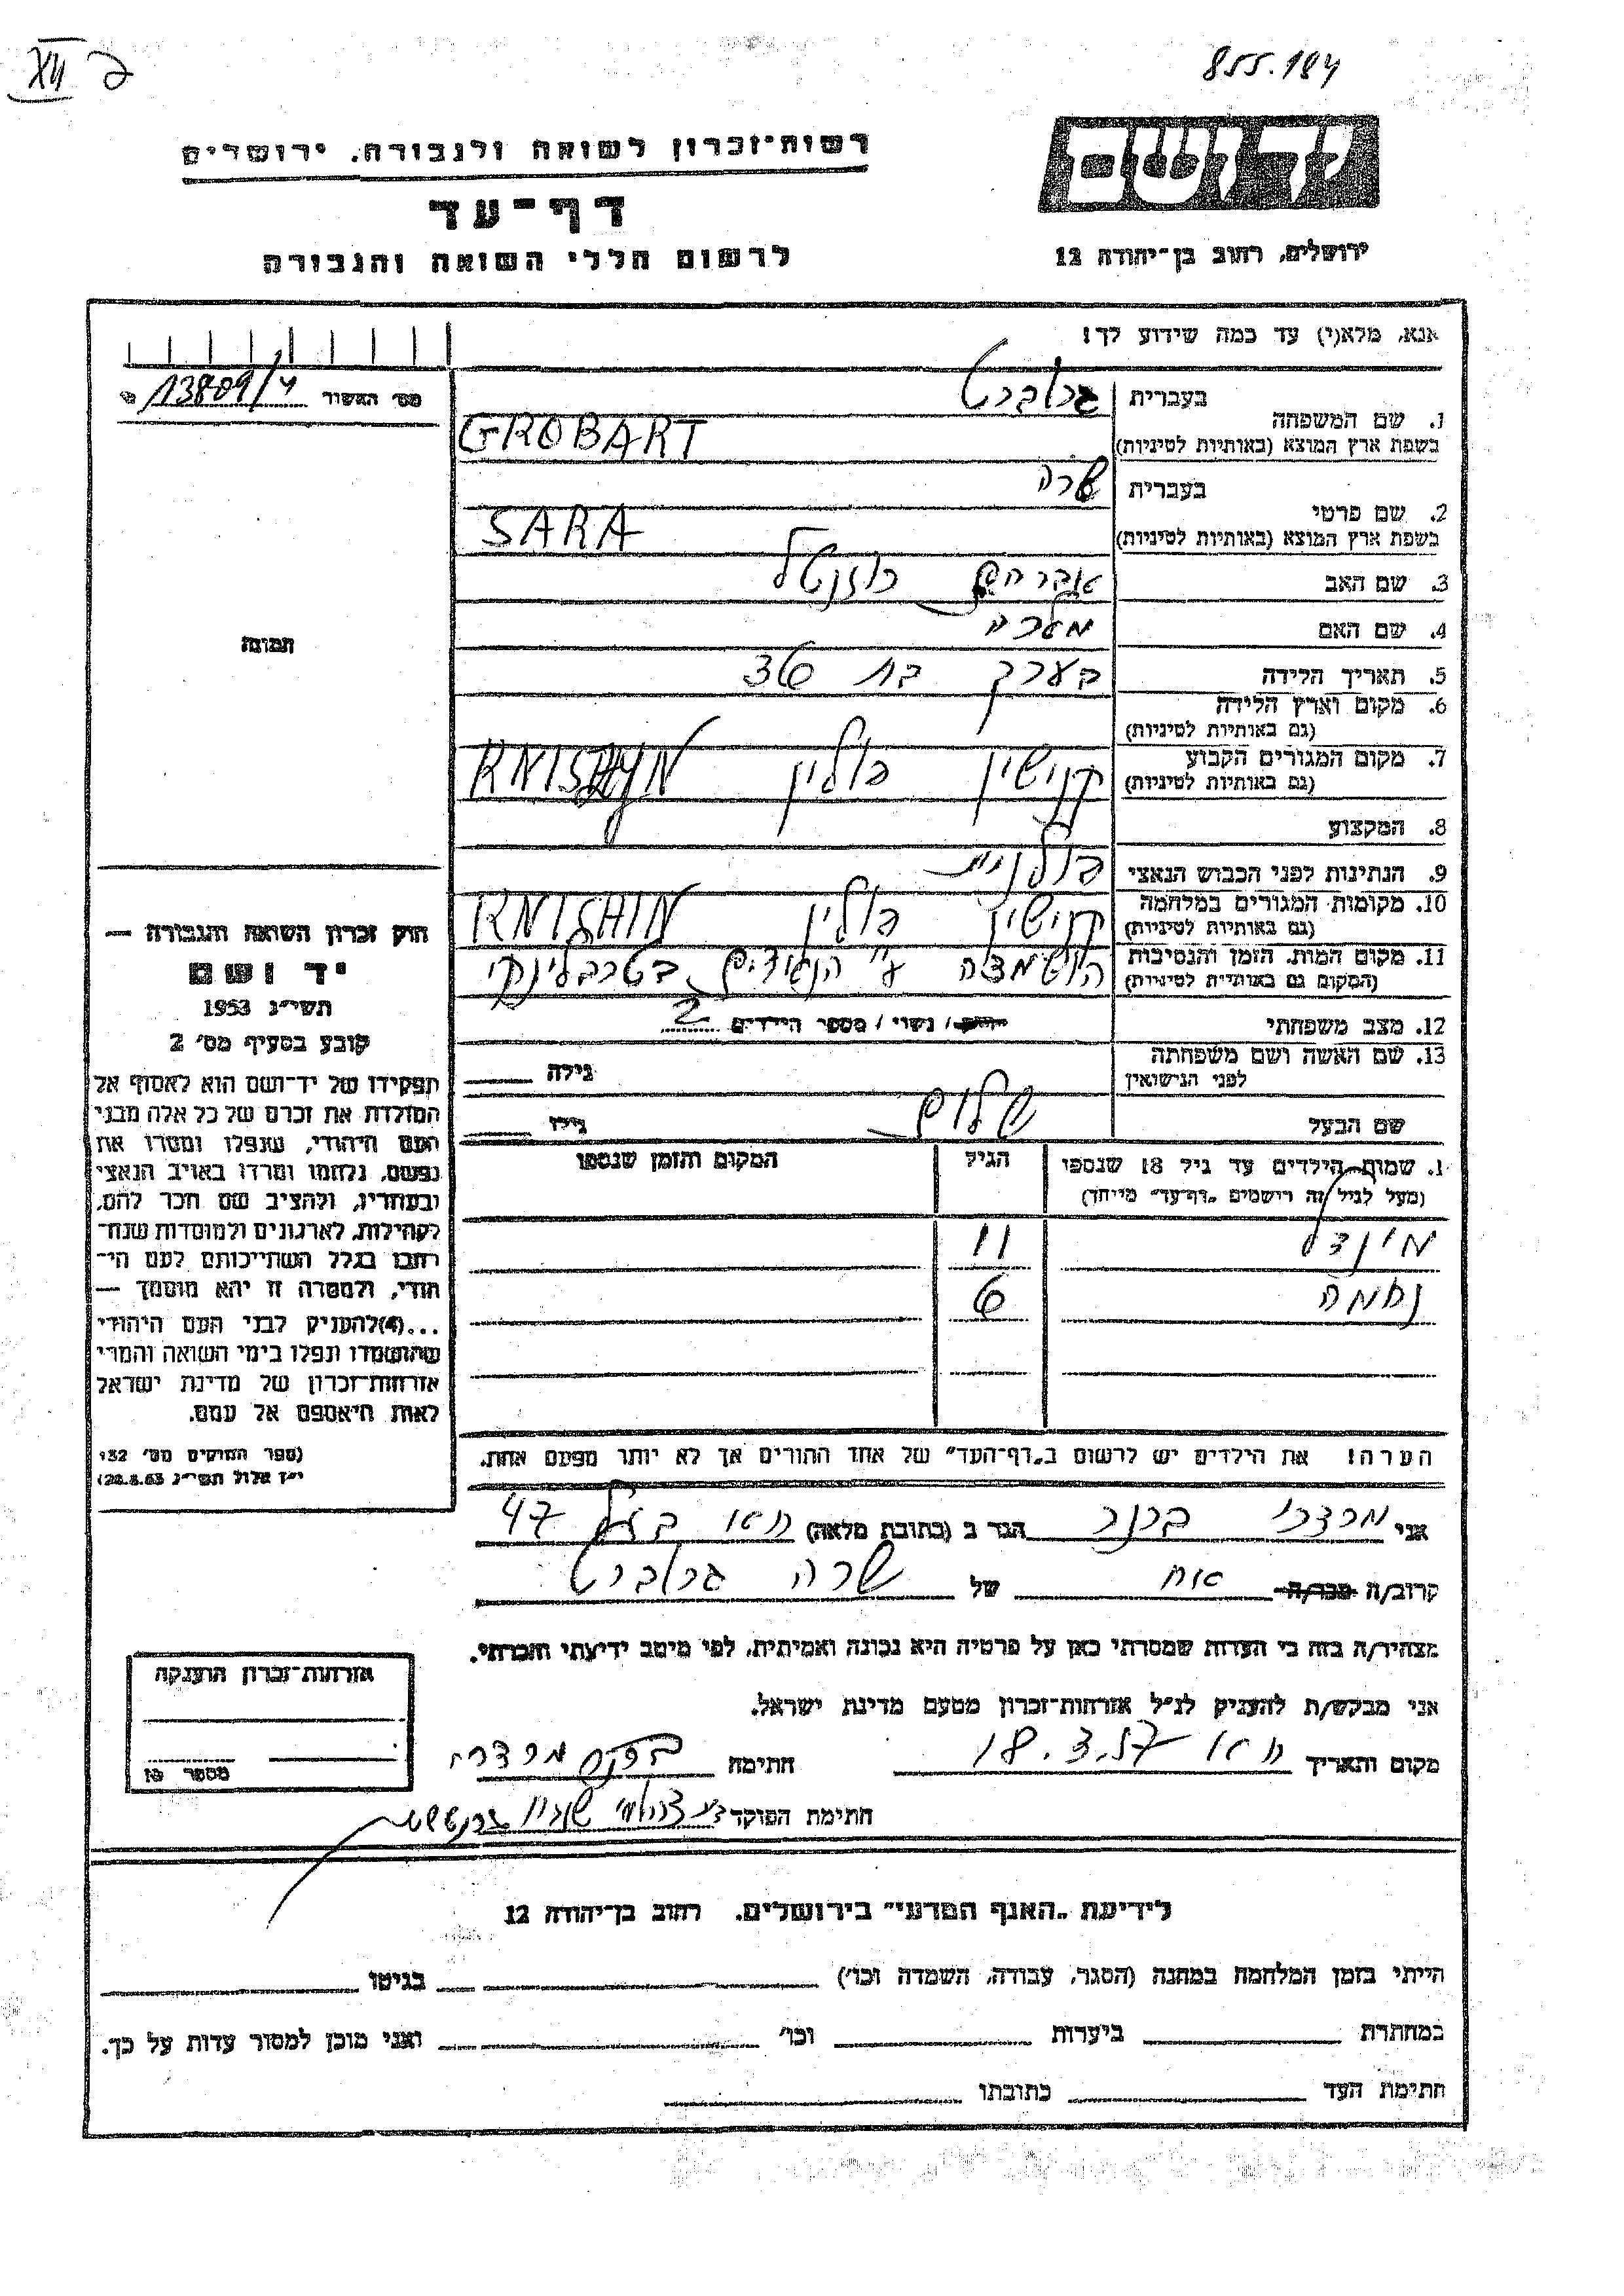 855.184
רשות־זכרון לשואה ולגבורה, ירושלים
דף־עד
לרשום חללי השואה והגבורה
יד ושם
ירושלים, רחוב בן־יהודה 12
אנא, מלא(י) עד כמה שידוע לך!
מס׳ האשור 13809/4
1. שם המשפחה
בעברית גרוברט
בשפת ארץ המוצא (באותיות לטיניות) GROBART
2. שם פרטי
בעברית שרה
בשפת ארץ המוצא (באותיות לטיניות) SARA
3. שם האב אברהם רוזנטל
4. שם האם מלכה
5. תאריך הלידה בערך בת 36
6. מקום וארץ הלידה
(גם באותיות לטיניות)
7. מקום המגורים הקבוע קנישין פולין
(גם באותיות לטיניות)
8. המקצוע
9. הנתינות לפני הכבוש הנאצי פולנית
10. מקומות המגורים במלחמה קנישין פולין KNISHIN
(גם באותיות לטיניות)
11. מקום המות, הזמן והנסיבות הושמדה ע״י הנאצים
(המקום גם באותיות לטיניות)
12. מצב משפחתי נשוי / מספר הילדים 2
13. שם האשה ושם משפחתה
לפני הנישואין גילה
שם הבעל שלום גילו
1. שמות הילדים עד גיל 18 שנספו הגיל המקום והזמן שנספו
(מעל לגיל זה רישמים „דף־עד״ מיוחד)
מינדל 11
נחמה 6
הערה! את הילדים יש לרשום ב„דף־העד״ של אחד ההורים אך לא יותר מפעם אחת.
תמונה
חוק זכרון השואה והגבורה —
יד ושם
תשי״ג 1953
קובע בסעיף מס׳ 2
תפקידו של יד־ושם הוא לאסוף אל
המולדת את זכרם של כל אלה מבני
העם היהודי, שנפלו ומסרו את
נפשם, נלחמו ומרדו באויב הנאצי
ובעוזריו, ולהציב שם וזכר להם,
לקהילות, לארגונים ולמוסדות שנח־
רבו בגלל השתייכותם לעם הי־
הודי, ולמטרה זו יהא מוסמך —
...(4) להעניק לבני העם היהודי
שהושמדו ונפלו בימי השואה והמרי
אזרחות־זכרון של מדינת ישראל
לאות היאספם אל עמם.
(ספר החוקים מס׳ 132
י״ז אלול תשי״ג 28.8.53)
אני מרדכי הגר ב (כתובת מלאה) 47
קרוב/ה מכר/ה אח של שרה גרוברט
מצהיר/ה בזה כי העדות שמסרתי כאן על פרטיה היא נכונה ואמיתית, לפי מיטב ידיעתי והכרתי.
אני מבקש/ת להעניק לנ״ל אזרחות־זכרון מטעם מדינת ישראל.
מקום ותאריך 18.3.57 חתימה מרדכי
חתימת הפוקד
אזרחות־זכרון הוענקה
מספר
לידיעת „האגף המדעי״ בירושלים, רחוב בן־יהודה 12
הייתי בזמן המלחמה במחנה (הסגר, עבודה, השמדה וכו׳) בגיטו
במחתרת ביערות וכו׳ ואני מוכן למסור עדות על כך.
חתימת העד כתובתו